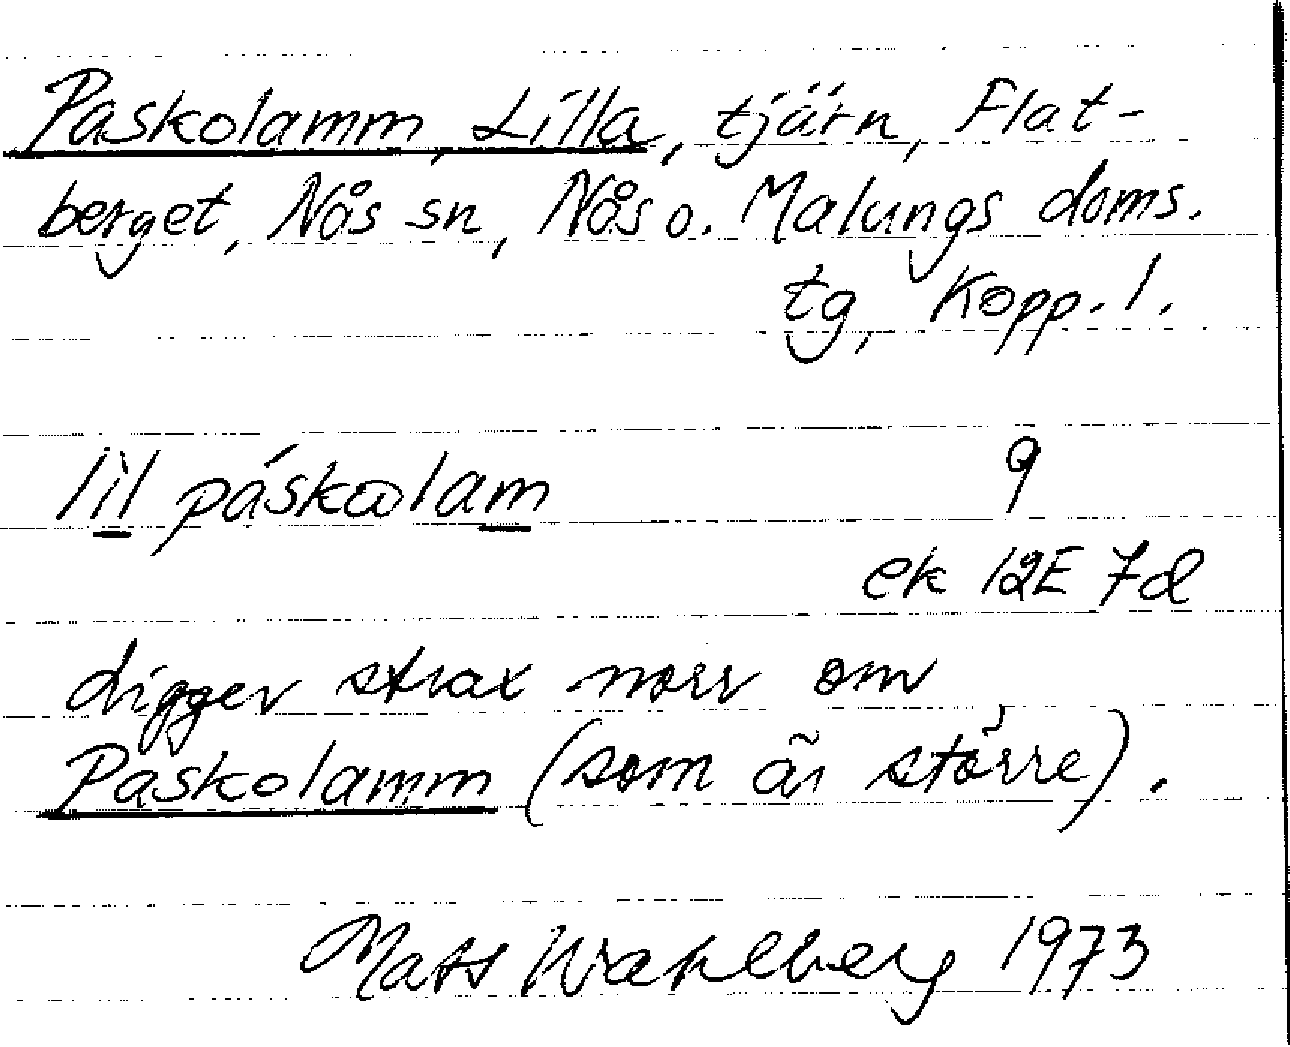 Paskolamm, Lilla, tjärn, Flat-
berget, Nås sn, Nås o. Malungs doms.
tg, Kopp. l.
lìl páskωlam 9
ek 12E 7d
Ligger strax norr om
Paskolamm (som är större).
Mats Wahlberg 1973